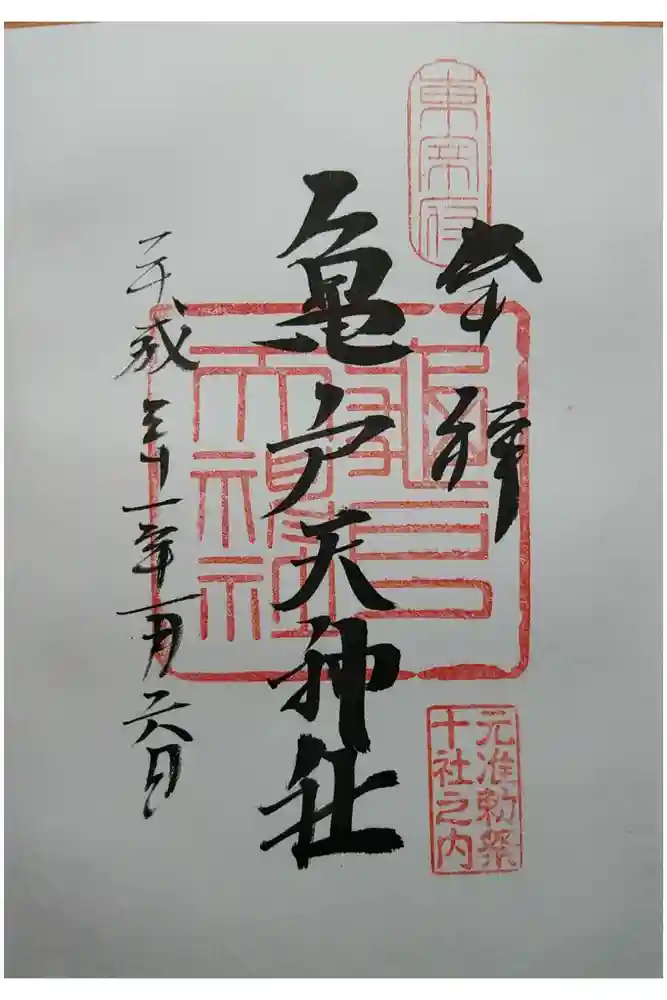 東宰府
奉拝
亀戸天神社
龜戸
天神社
元准勅祭
十社之内
平成三十一年一月二六日